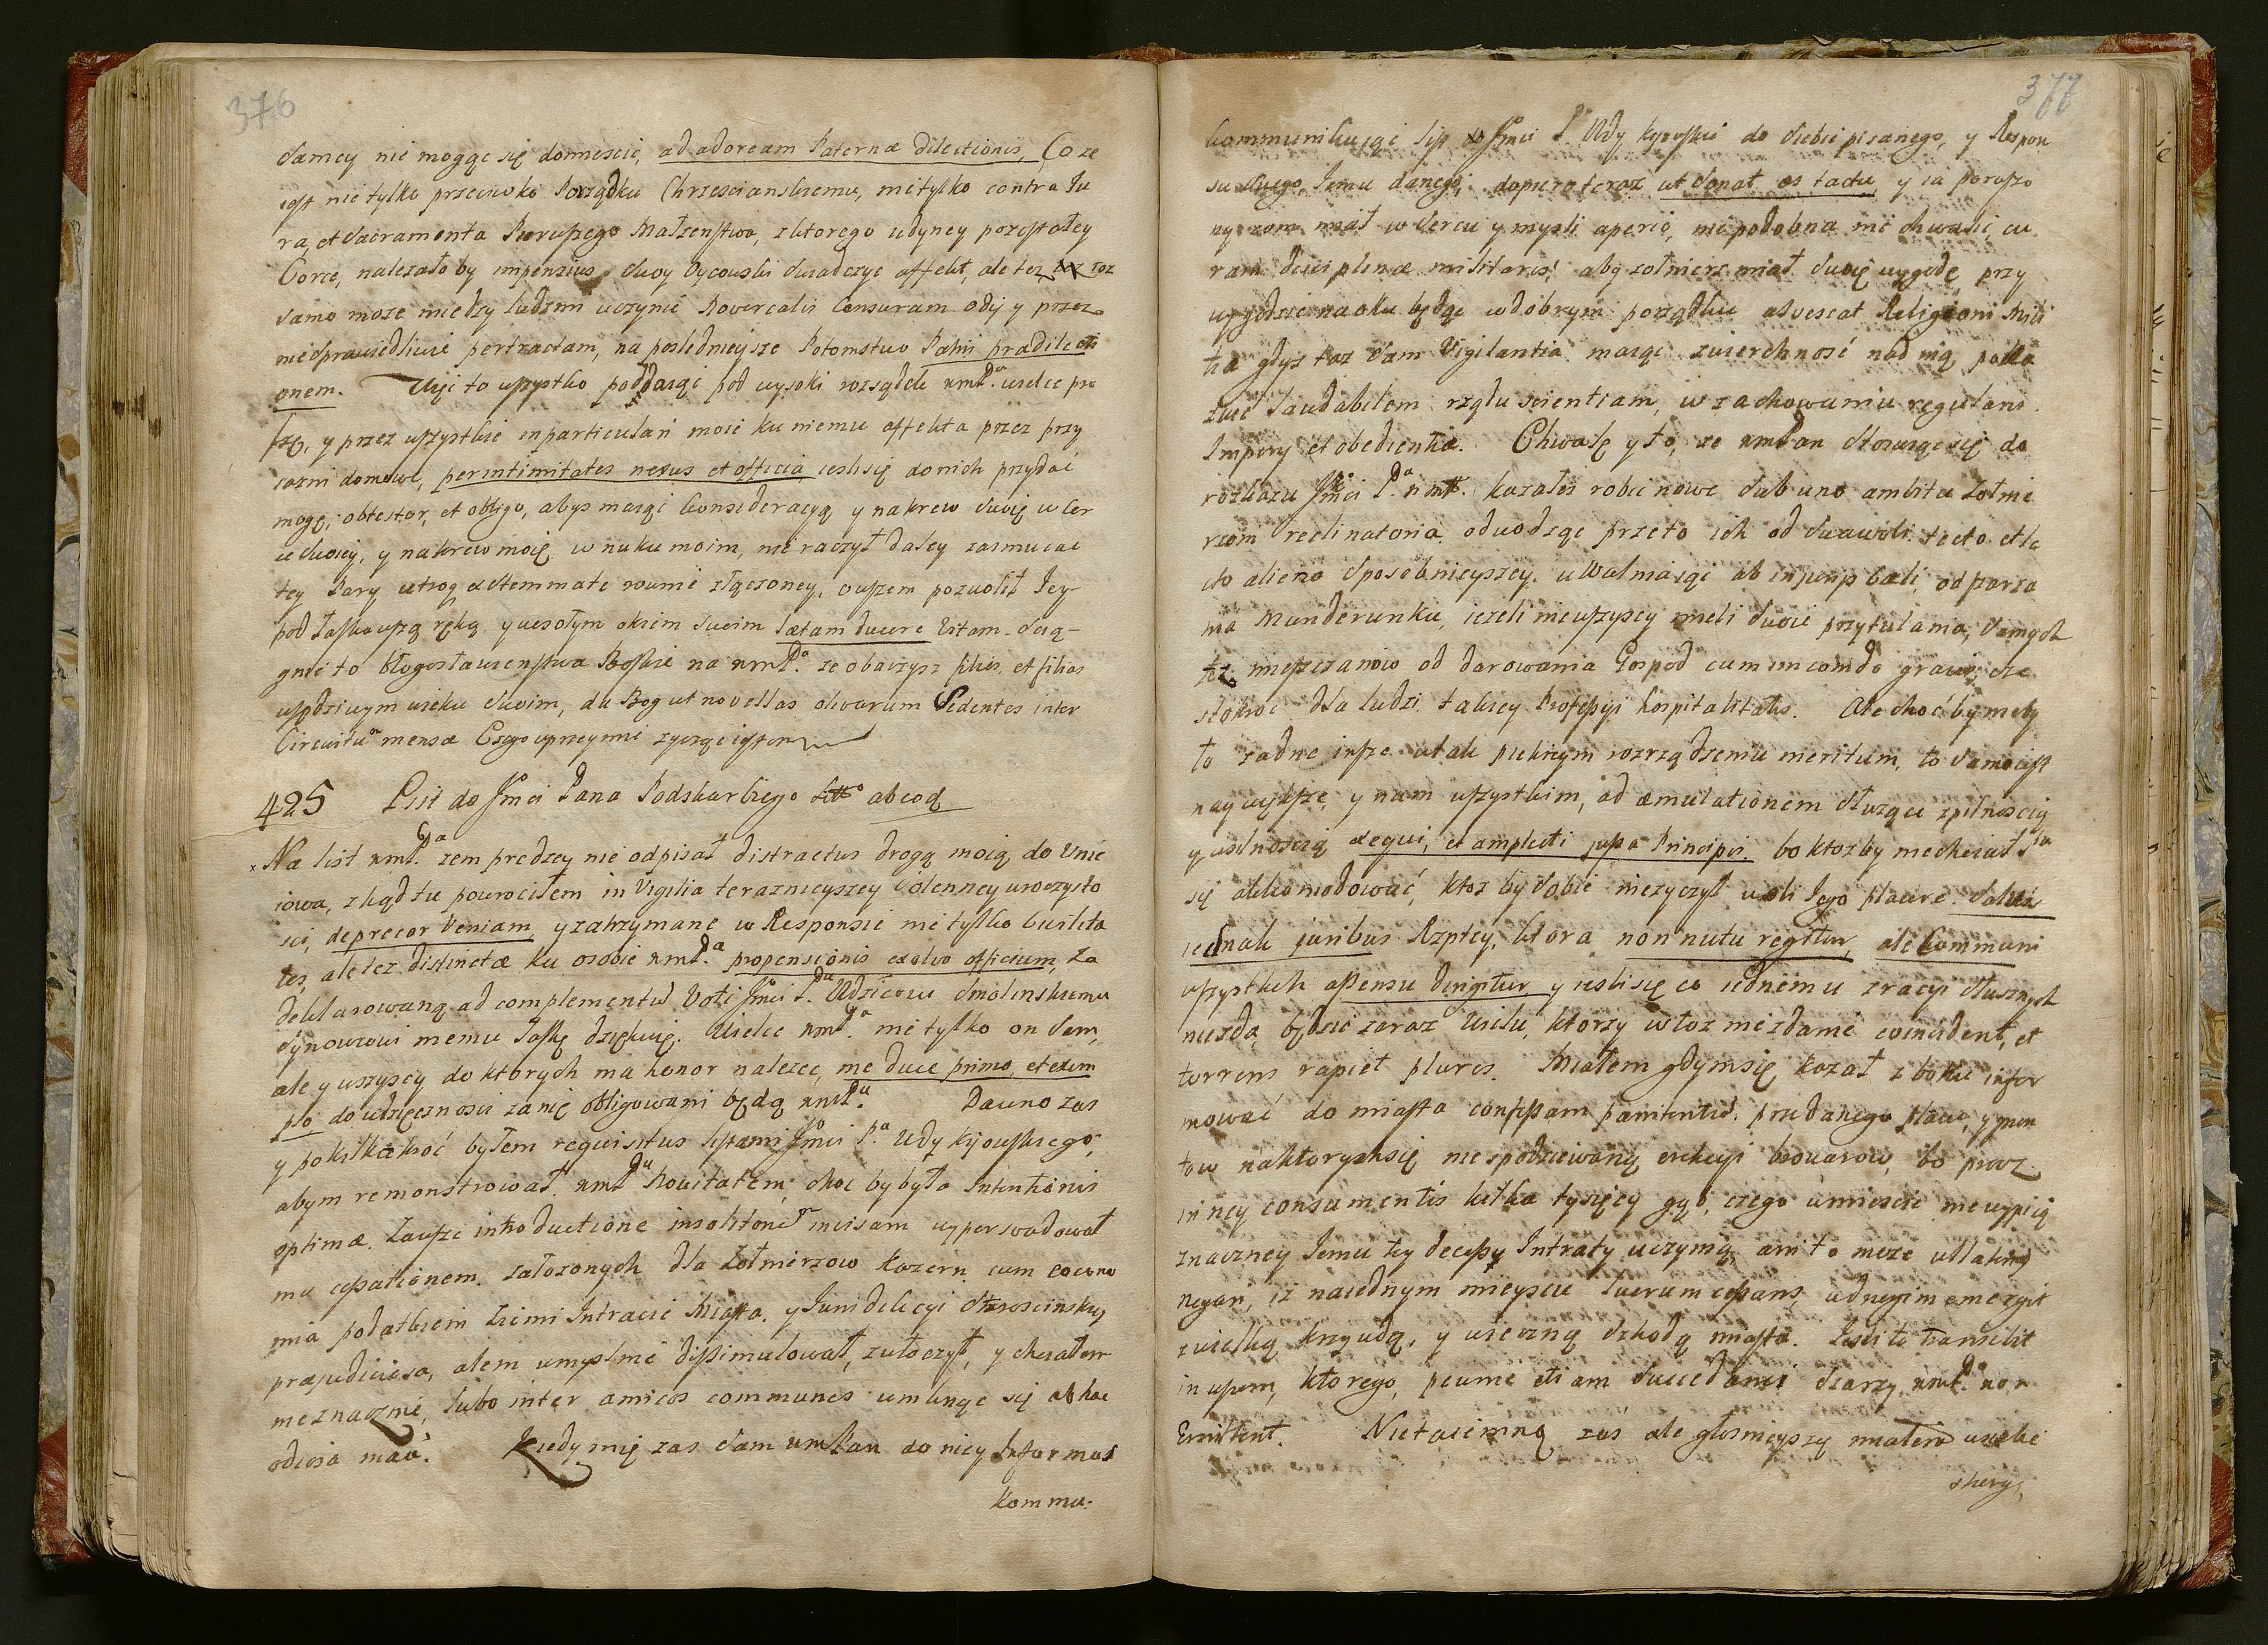 376
samey nie mogąc się domieścić, ad adoream Paternæ dilectionis, Co ze
iest nie tylko przeciwko Porządku Chrzescianskiemu, nie tylko contra Ju
ra, et Sacramenta Pierwszego Małzenstwa, z ktorego iedyney pozostałey
Corce, nalezało by impensius swoy Oycowski swiadczyc affekt, ale tez toz
samo moze miedzy ludzmi uczynic Novercalis Censuram odij y przez
niesprawiedliwie pertractam, na poslednieysze Potomstwo Patris prædilecti
onem. Więc to wszystko poddaiąc pod wysoki rozsądek wmPa. wielce pro
szę, y przez wszystkie in particulari moie ku niemu affekta przez przy
iazni domowe, per intimitates nexus et officia iesli się do nich przydac
mogę, obtestor, et obligo, abys maiąc Consideracyą y na krew swoię w Cor
ce swoiey, y na krew moię w nuku moim, nie raczył daley zasmucac
tey Pary utroq stemmate rownie złączoney, owszem pozwolił Jey
pod Łaskawszą ręką y wesołym okiem swoim lætam ducere Vitam. Scią
gnie to błogosławienstwa Boskie na wmPa. ze obaczysz filios, et filias
w sędziwym wieku swoim, da Bog ut novellas olivarum Sedentes inter
Circuitu mensæ Czego uprzeymie zycząc iestem
425 List do Jmci Pana Podskarbiego Litto ab eod
Na list wmPa. zem prędzey nie odpisał distractus drogą moią do Unie
iowa, zkąd tu powrociłem in Vigilia teraznieyszey solenney uroczysto
sci, deprecor Veniam, y zatrzymane w Responsie nie tylko Civilita
tes, ale tez distinctæ ku osobie wmPa. propensionis exolvo officium, Za
deklarowaną ad complementu Voti Jmci Pu Wdzicowi Smolinskiemu
Synowcowi memu Łaskę dziękuię. Wielce wmPa. nie tylko on sam,
ale y wszyscy do ktorych ma honor nalezec, me duce primo, et exem
plo do wdzięcznosci za nię obligowani będą wmPu. Dawno zas
y po kilkakroć byłem requisitus listami Jmci Pa. Wdy kijowskiego,
abym remonstrował wmPu Novitatem, choc by była Intentionis
optimæ. Zawsze introductione insolitoru invisam wyperswadował
mu cessationem. załozonych dla Zołnierzow Kozern cum
mia podatkiem Ziemi Intracie Miasta. y Jurisdikcyi Staroscinskiey
præjudiciosa, alem umyslnie dissimulował, zwłoczył, y chciałem
nieznacznie, lubo inter amicos communes umknąc się ab hac
odiosa mao. Kiedy mię zas sam wmPan do niey Informas
Kommu-
377
kommunikuiąc list Jmci Pa Wdy kyowskie do siebie pisanego, y Respon
su swego Jemu danego, dopiero teraz ut sonat os tactu y ia poruszo
ny zem miał w sercu y mysli aperio, niepodobna nie chwalic cu
ram disciplinæ militaris, aby zołnierz miał swoię wygodę przy
wygodzie na oku będąc w dobrym porządku asvescat Religioni Mili
tiæ gdys taz sam Vigilantia maiąc zwierchnosć nad nią poka
zuie laudabilem rządu scientiam, w zachowaniu regulani
Impery et obedientiæ. Chwalę y to, ze wmPan stosuiąc się do
rozkazu Jmci Pa. nmto. kazałes robic nowe sub uno ambitu Zołnie
rzom reclinatoria odwodząc przeto ich od swawoli tecto et le
cto alieno sposobnieyszey. uwalniaiąc ab od
nia Munderunku, iezeli nie wszyscy mieli swoie przytulama, samych
tez mieszczanow od darowania Gospod cum incomodo gravi, etc
stokroc dla ludzi takiey Professyi hospitalitatis. Ale choć by mely
to zadne insze w tak pieknym rozrządzeniu meritum, to samo iest
naywiększe y nam wszystkim, ad æmulationem słuzące z pilnoscią
y usilnoscią exequi, et amplecti jussa Principis. bo ktoz by niechciał Jm
się akkomodować, ktoz by sobie nie zyczył woli Jego placere. Salvis
iednak juribus Rzptey, ktora non nutu regitur, ale Communi
wszystkich assensu dirigitur y iesli się co iednemu z racyi słusznych
niezda, będzie zaraz wielu, ktorzy w toz niezdanie coincident, et
torrens rapiet plures. Miałem gdym się kazał z boku infor
mować do miasta confissam pænitentiu. przedanego placu, y grun
tow na ktorych się niespodziewaney erekcyi browarow, bo przez
in ney consumentis kilka tysięcy gęb, czego w miescie nie wypią
znaczney Jemu tey decessy Intraty uczynią, ani to moze
negari, iz na iednym mieyscie lucrum cessans, w drugim emergit
z wielką krzywdą, y wieczną szkodą miasta. Iesli to transibit
in usum, ktorego, pewnie etiam succedanei starzy wmPa. non
Emittent. Nie taiemną zas ale głosnieyszą miałem wiele
skarg,